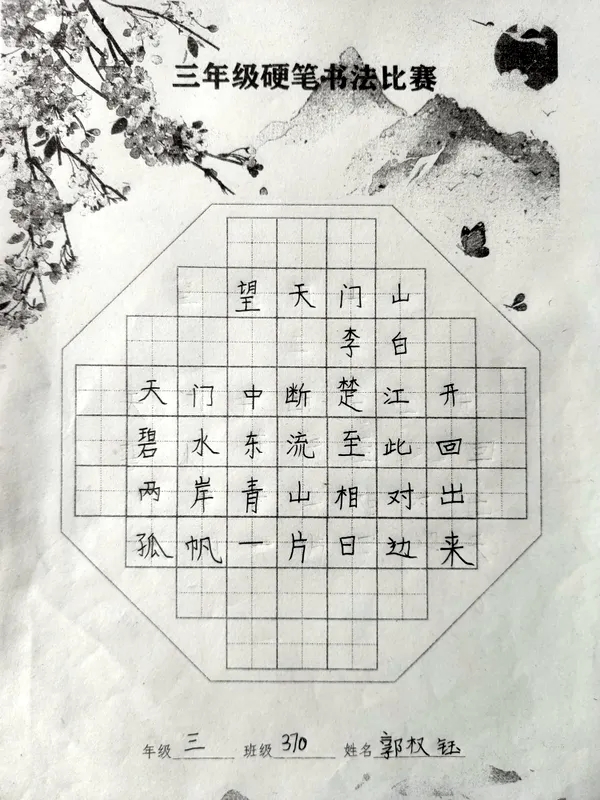 三年级硬笔书法比赛
望天门山
李白
天门中断楚江开
碧水东流至此回
两岸青山相对出
孤帆一片日边来
年级 三 班级 370 姓名 郭权钰